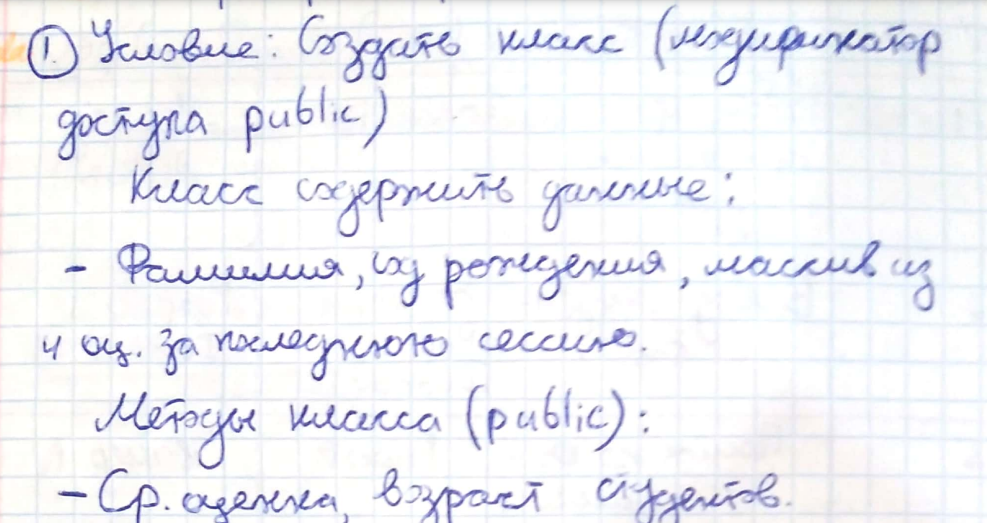 ① Условие: Создать класс (модификатор
доступа public)
Класс содержить данные:
- Фамилия, год рождения, массив из
4 оц. за последнюю сессию.
Методы класса (public):
- Ср. оценка, возраст студентов.